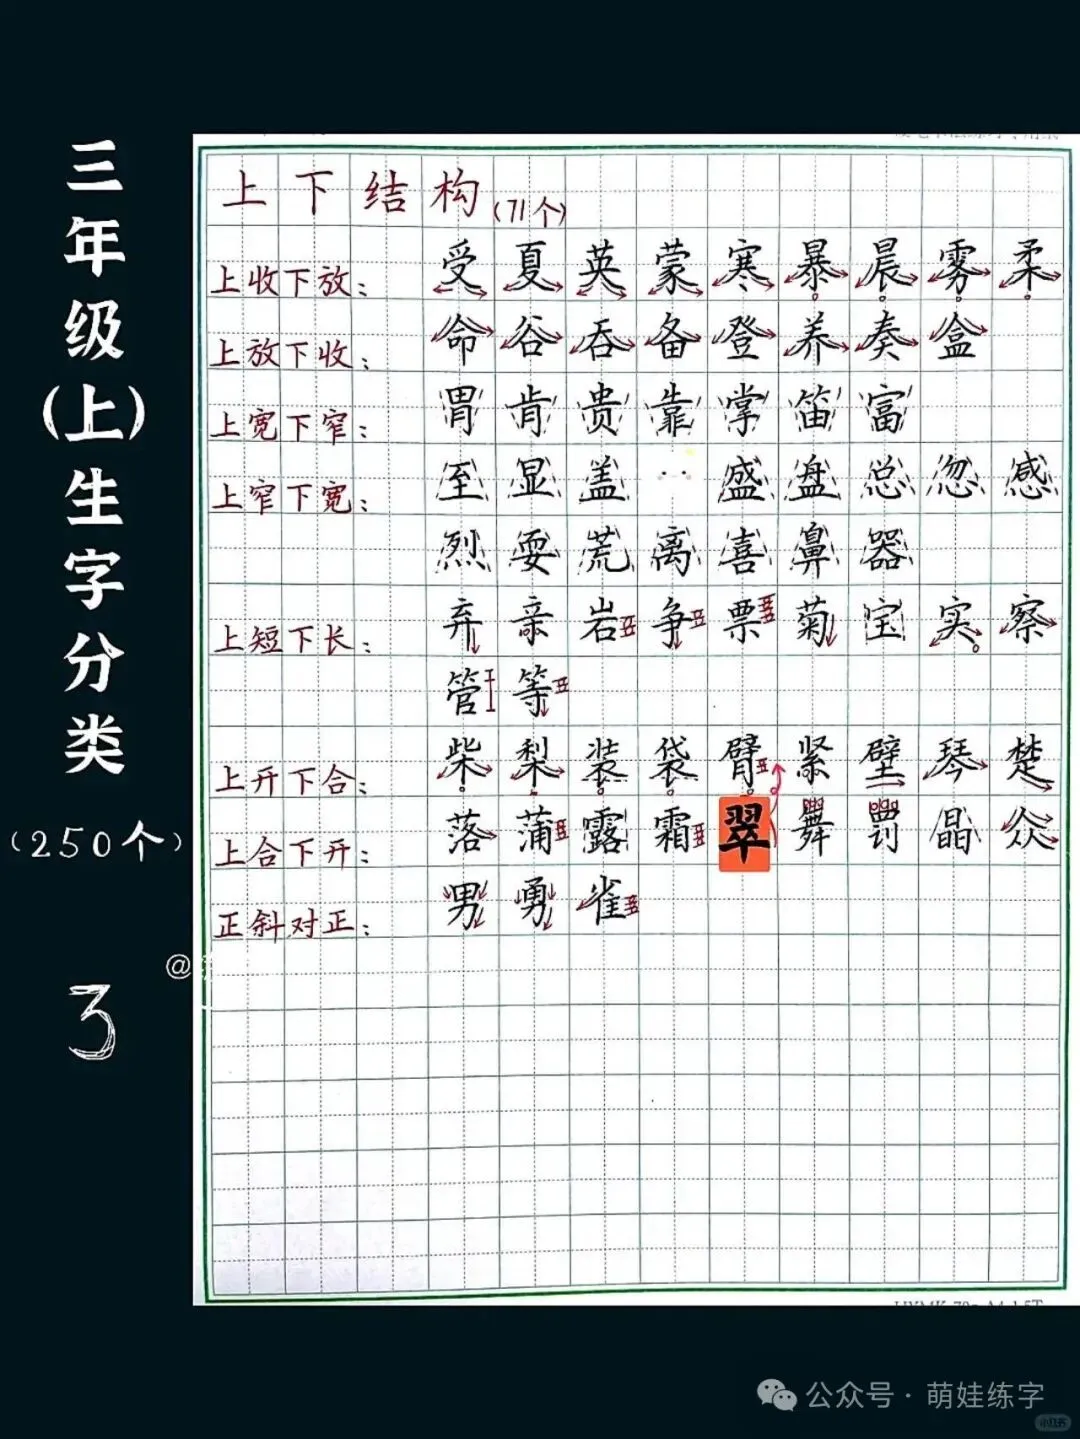 三年级(上)生字分类
(250个)
3
上下结构(71个)
上收下放：受夏英蒙寒暴晨雾柔
上放下收：命谷吞备登养奏盒
上宽下窄：胃肯贵靠掌笛富
上窄下宽：至显盖盛盘总忽感
烈耍荒离喜鼻器
上短下长：弃亲岩争票菊宝实察
管等
上开下合：柴梨装袋臂紧壁琴楚
上合下开：落蒲露霜翠舞罚晶众
正斜对正：男勇雀
公众号·萌娃练字
小红书